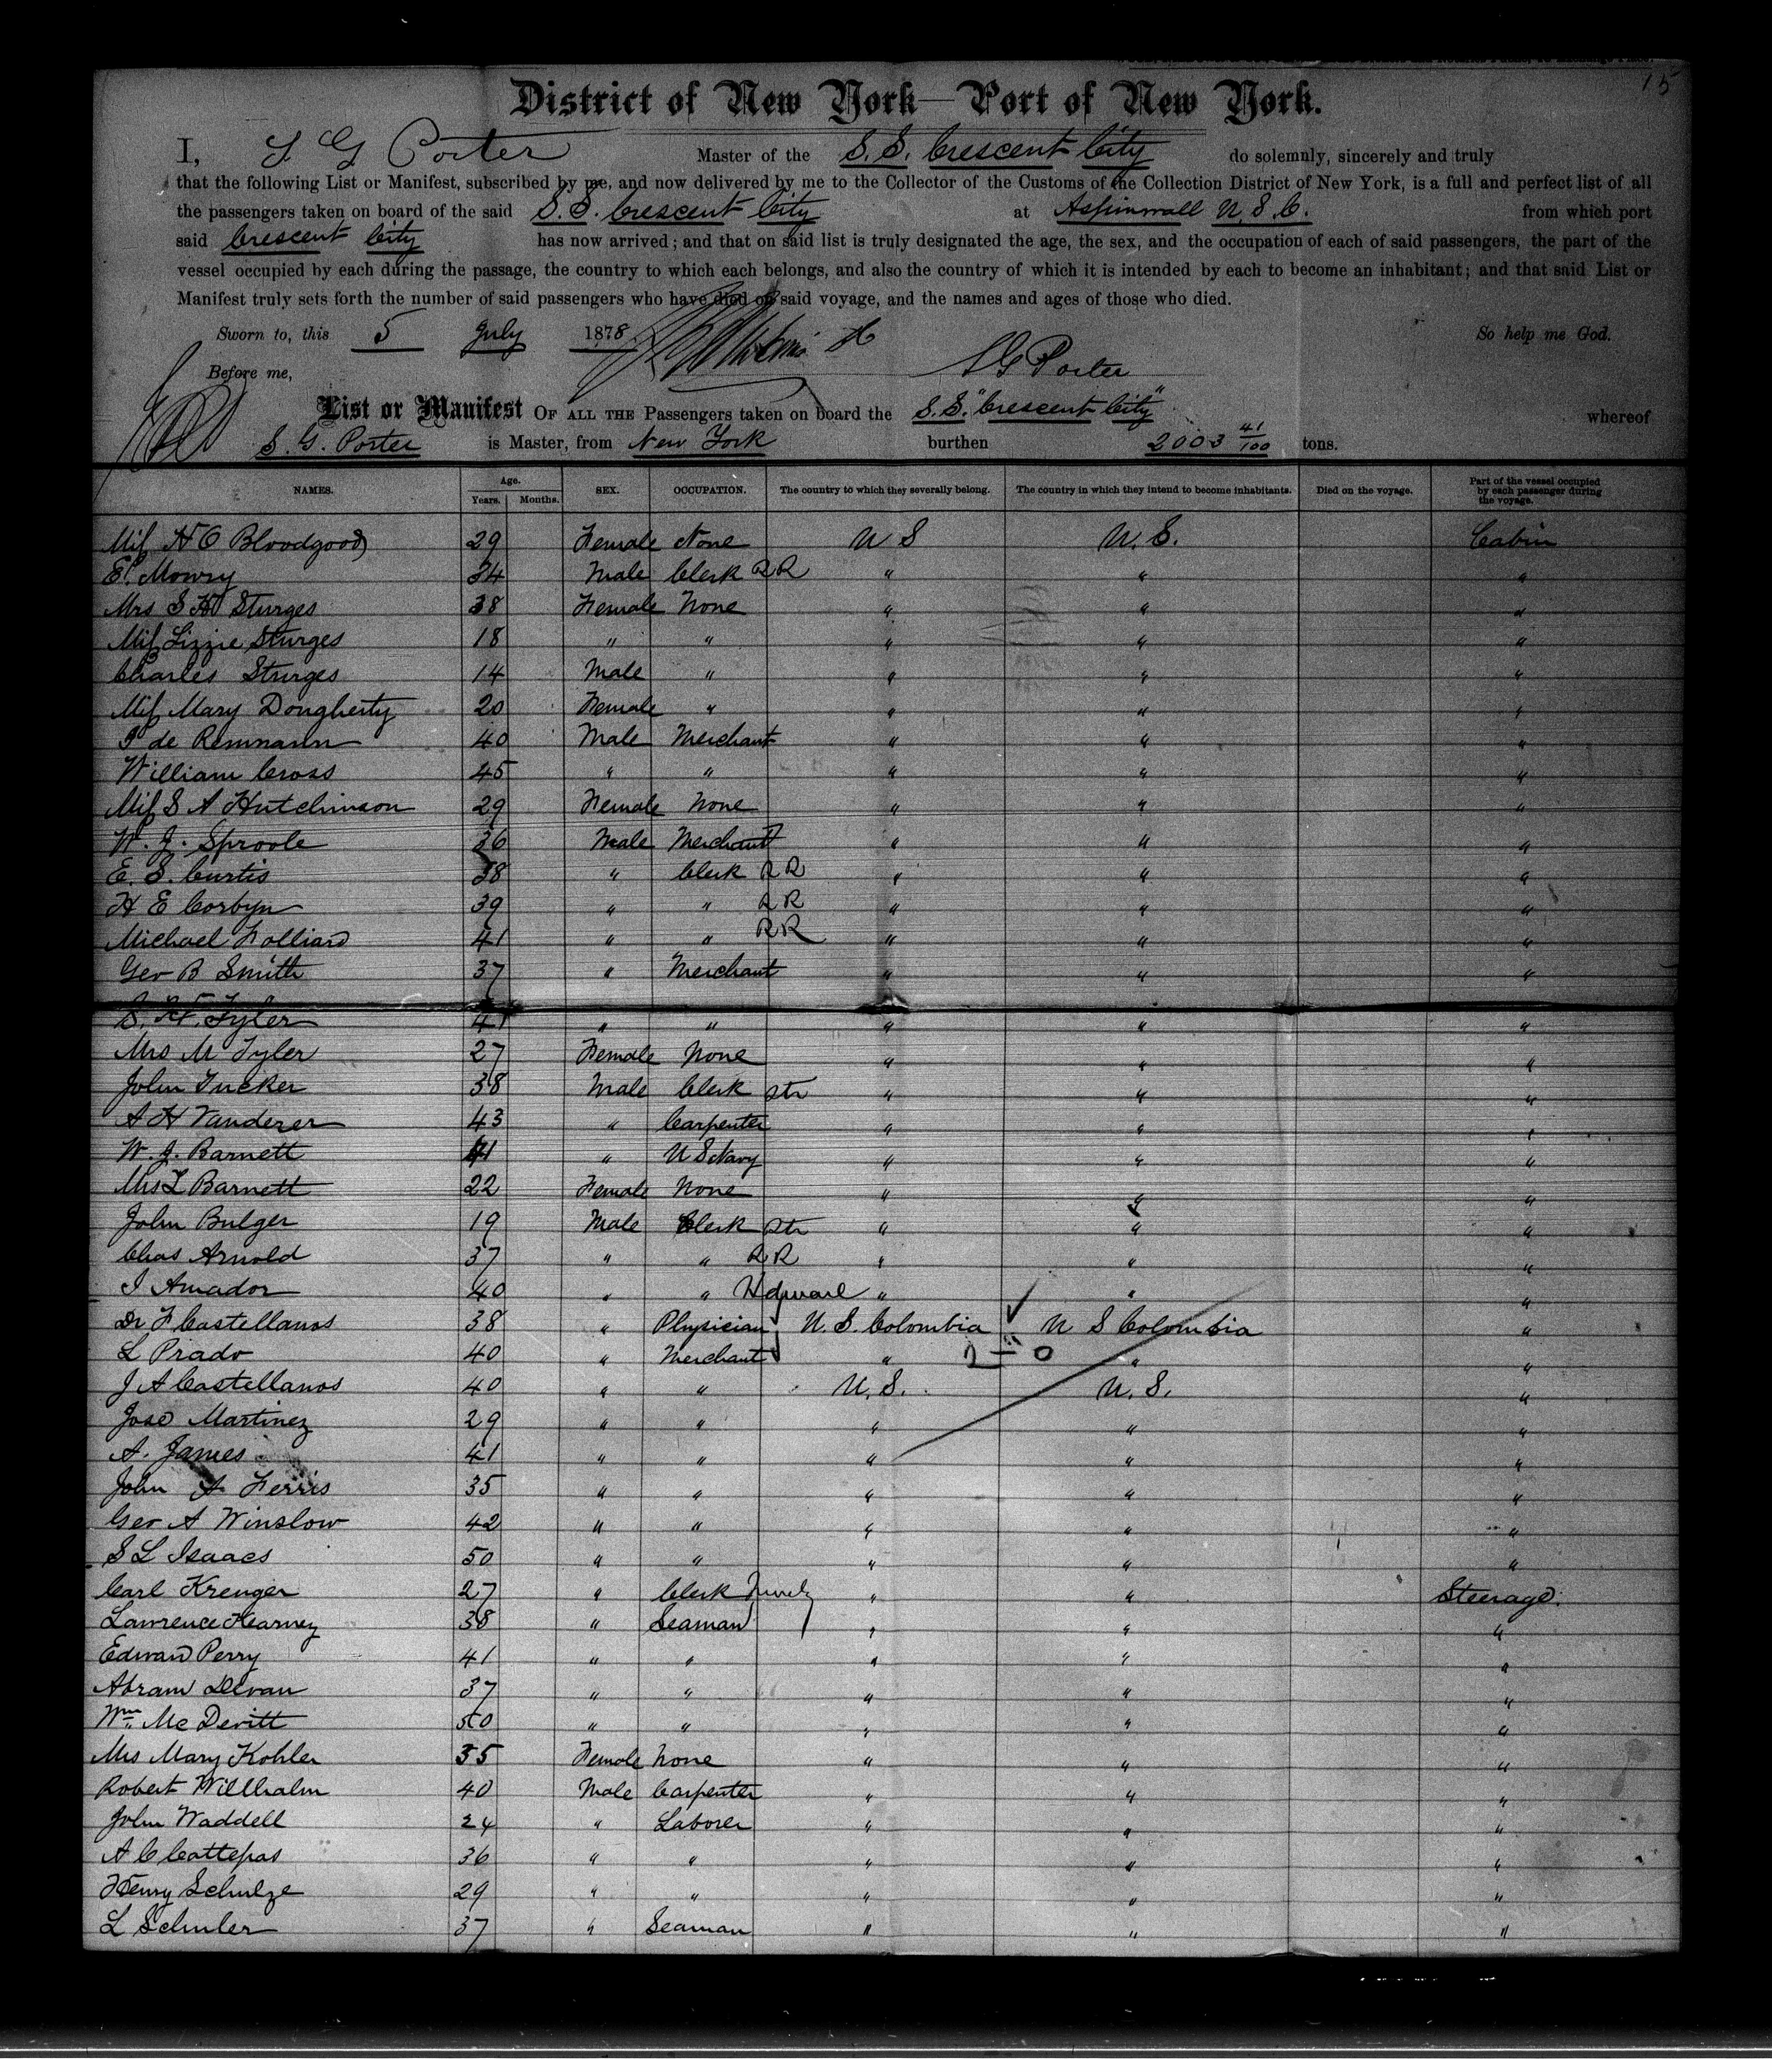 15
District of New York—Port of New York.
I, S. G. Porter Master of the S.S. Crescent City do solemnly, sincerely and truly
that the following List or Manifest, subscribed by me, and now delivered by me to the Collector of the Customs of the Collection District of New York, is a full and perfect list of all
the passengers taken on board of the said S.S. Crescent City at Aspinwall U.S.C. from which port
said Crescent City has now arrived; and that on said list is truly designated the age, the sex, and the occupation of each of said passengers, the part of the
vessel occupied by each during the passage, the country to which each belongs, and also the country of which it is intended by each to become an inhabitant; and that said List or
Manifest truly sets forth the number of said passengers who have died on said voyage, and the names and ages of those who died.
Sworn to, this 5 July 1878 So help me God.
Before me, S G Porter
List or Manifest OF ALL THE Passengers taken on board the S.S. "Crescent City" whereof
S. G. Porter is Master, from New York burthen 2003 41/100 tons.
NAMES. Age. Years. Months. SEX. OCCUPATION. The country to which they severally belong. The country in which they intend to become inhabitants. Died on the voyage. Part of the vessel occupied by each passenger during the voyage.
Miss H C Bloodgood 29 Female None U S U. S. Cabin
E. Mowry 34 Male Clerk RR " " "
Mrs S H Sturges 38 Female None " " "
Miss Lizzie Sturges 18 " " " " "
Charles Sturges 14 Male " " " "
Miss Mary Dougherty 20 Female " " " "
de Remmann 40 Male Merchant " " "
William Cross 45 " " " " "
Miss S A Hutchinson 29 Female None " " "
W. J. Sproole 36 Male Merchant " " "
E. S. Curtis 38 " Clerk RR " " "
H E Corbyn 39 " " RR " " "
Michael Folliard 41 " " RR " " "
Geo B Smith 37 " Merchant " " "
Tyler 41 " " " " "
Mrs M Tyler 27 Female None " " "
John Tucker 38 Male Clerk Str " " "
A H Vanderer 43 " Carpenter " " "
W. J. Barnett 41 " U S Navy " " "
Mrs L Barnett 22 Female None " " "
John Bulger 19 Male Clerk Str " " "
Chas Arnold 37 " " RR " " "
I Amador 40 " " Hdware " " "
Dr F Castellanos 38 " Physician U. S. Colombia U S Colombia "
L Prado 40 " Merchant " 2 – 0 " "
J A Castellanos 40 " " U. S. U. S. "
Jose Martinez 29 " " " " "
A. James 41 " " " " "
John A Ferris 35 " " " " "
Geo A Winslow 42 " " " " "
S L Isaacs 50 " " " " "
Carl Krenger 27 " Clerk " " Steerage
Lawrence Kearney 38 " Seaman " " "
Edward Perry 41 " " " " "
Abram Devan 37 " " " " "
Wm Mc Devitt 50 " " " " "
Mrs Mary Kohler 35 Female None " " "
Robert Willhalm 40 Male Carpenter " " "
John Waddell 24 " Laborer " " "
A C Cattepas 36 " " " " "
Henry Schulze 29 " " " " "
L Schuler 37 " Seaman " " "